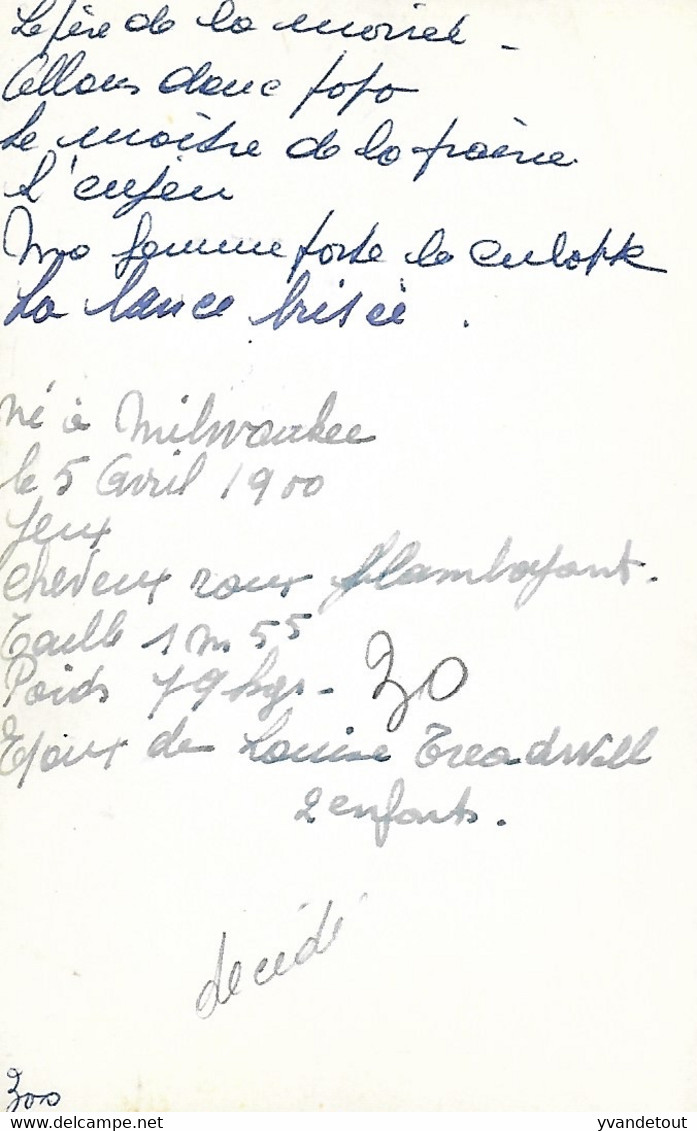 Le père de la mariée -
Allons donc papa
Le maître de la prairie
L'enjeu
Ma femme porte la culotte
La lance brisée .
né à Milwaukee
le 5 Avril 1900
Yeux
cheveux roux flamboyant.
Taille 1m55
Poids 79 kgs - 30
Epoux de Louise Treadwell
2 enfants.
decédé
300
delcampe.net
yvandetout